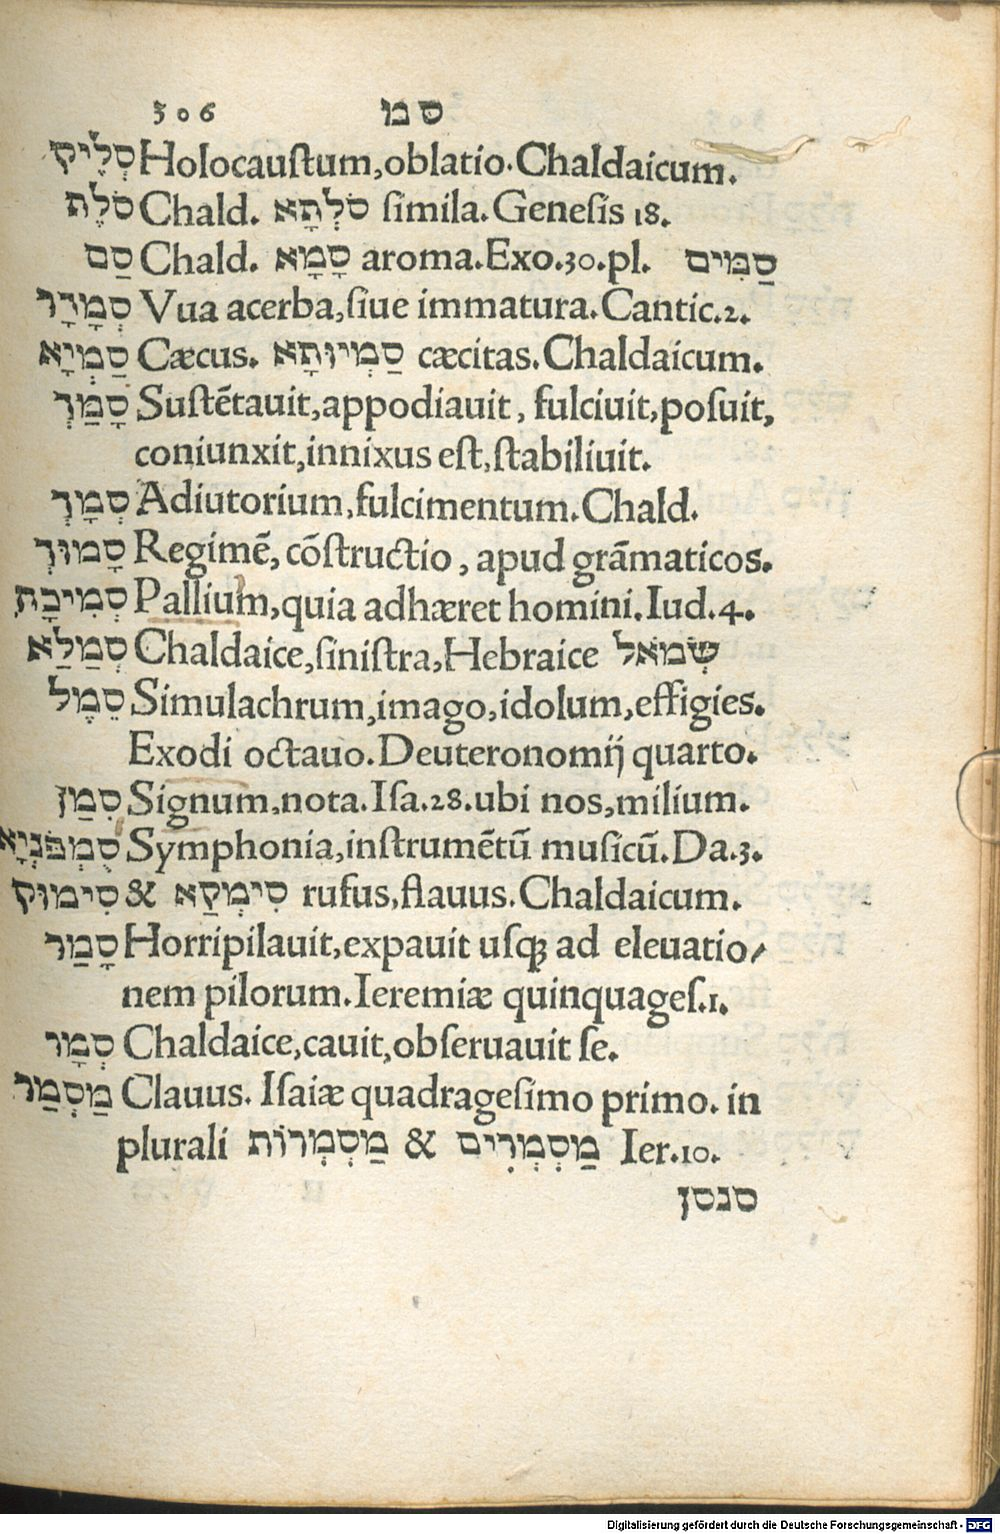 306 סמו
סְלֵיק Holocauſtum,oblatio.Chaldaicum.
סֹלֶת Chald. סֹלְתָא ſimila.Geneſis 18.
סַם Chald. סָמָא aroma.Exo.30.pl. סַמִּים
סְמָדָר Vua acerba,ſiue immatura.Cantic.2.
סַמְיָא Cæcus. סַמְיוּתָא cæcitas.Chaldaicum.
סָמַךְ Suſtẽtauit,appodiauit, fulciuit,poſuit,
coniunxit,innixus eſt,ſtabiliuit.
סְמָךְ Adiutorium,fulcimentum.Chald.
סָמוּךְ Regimẽ, cõſtructio, apud grãmaticos.
סְמִיכָת Pallium,quia adhæret homini.Iud.4.
סְמַלַא Chaldaice,ſiniſtra,Hebraice שְׂמֹאל
סֵמֶל Simulachrum,imago,idolum,effigies.
Exodi octauo.Deuteronomij quarto.
סִמַן Signum,nota.Iſa.28.ubi nos,milium.
סֻמְפֹּנְיָא Symphonia,inſtrumẽtũ muſicũ.Da.3.
סִימוּק & סִימְקַא rufus,flauus.Chaldaicum.
סָמַר Horripilauit,expauit uſq; ad eleuatio/
nem pilorum.Ieremiæ quinquageſ.1.
סְמָר Chaldaice,cauit,obſeruauit ſe.
מַסְמַר Clauus. Iſaiæ quadrageſimo primo. in
plurali מַסְמְרוֹת & מַסְמְרִים Ier.10.
סנסן
Digitalisierung gefördert durch die Deutsche Forschungsgemeinschaft - DFG